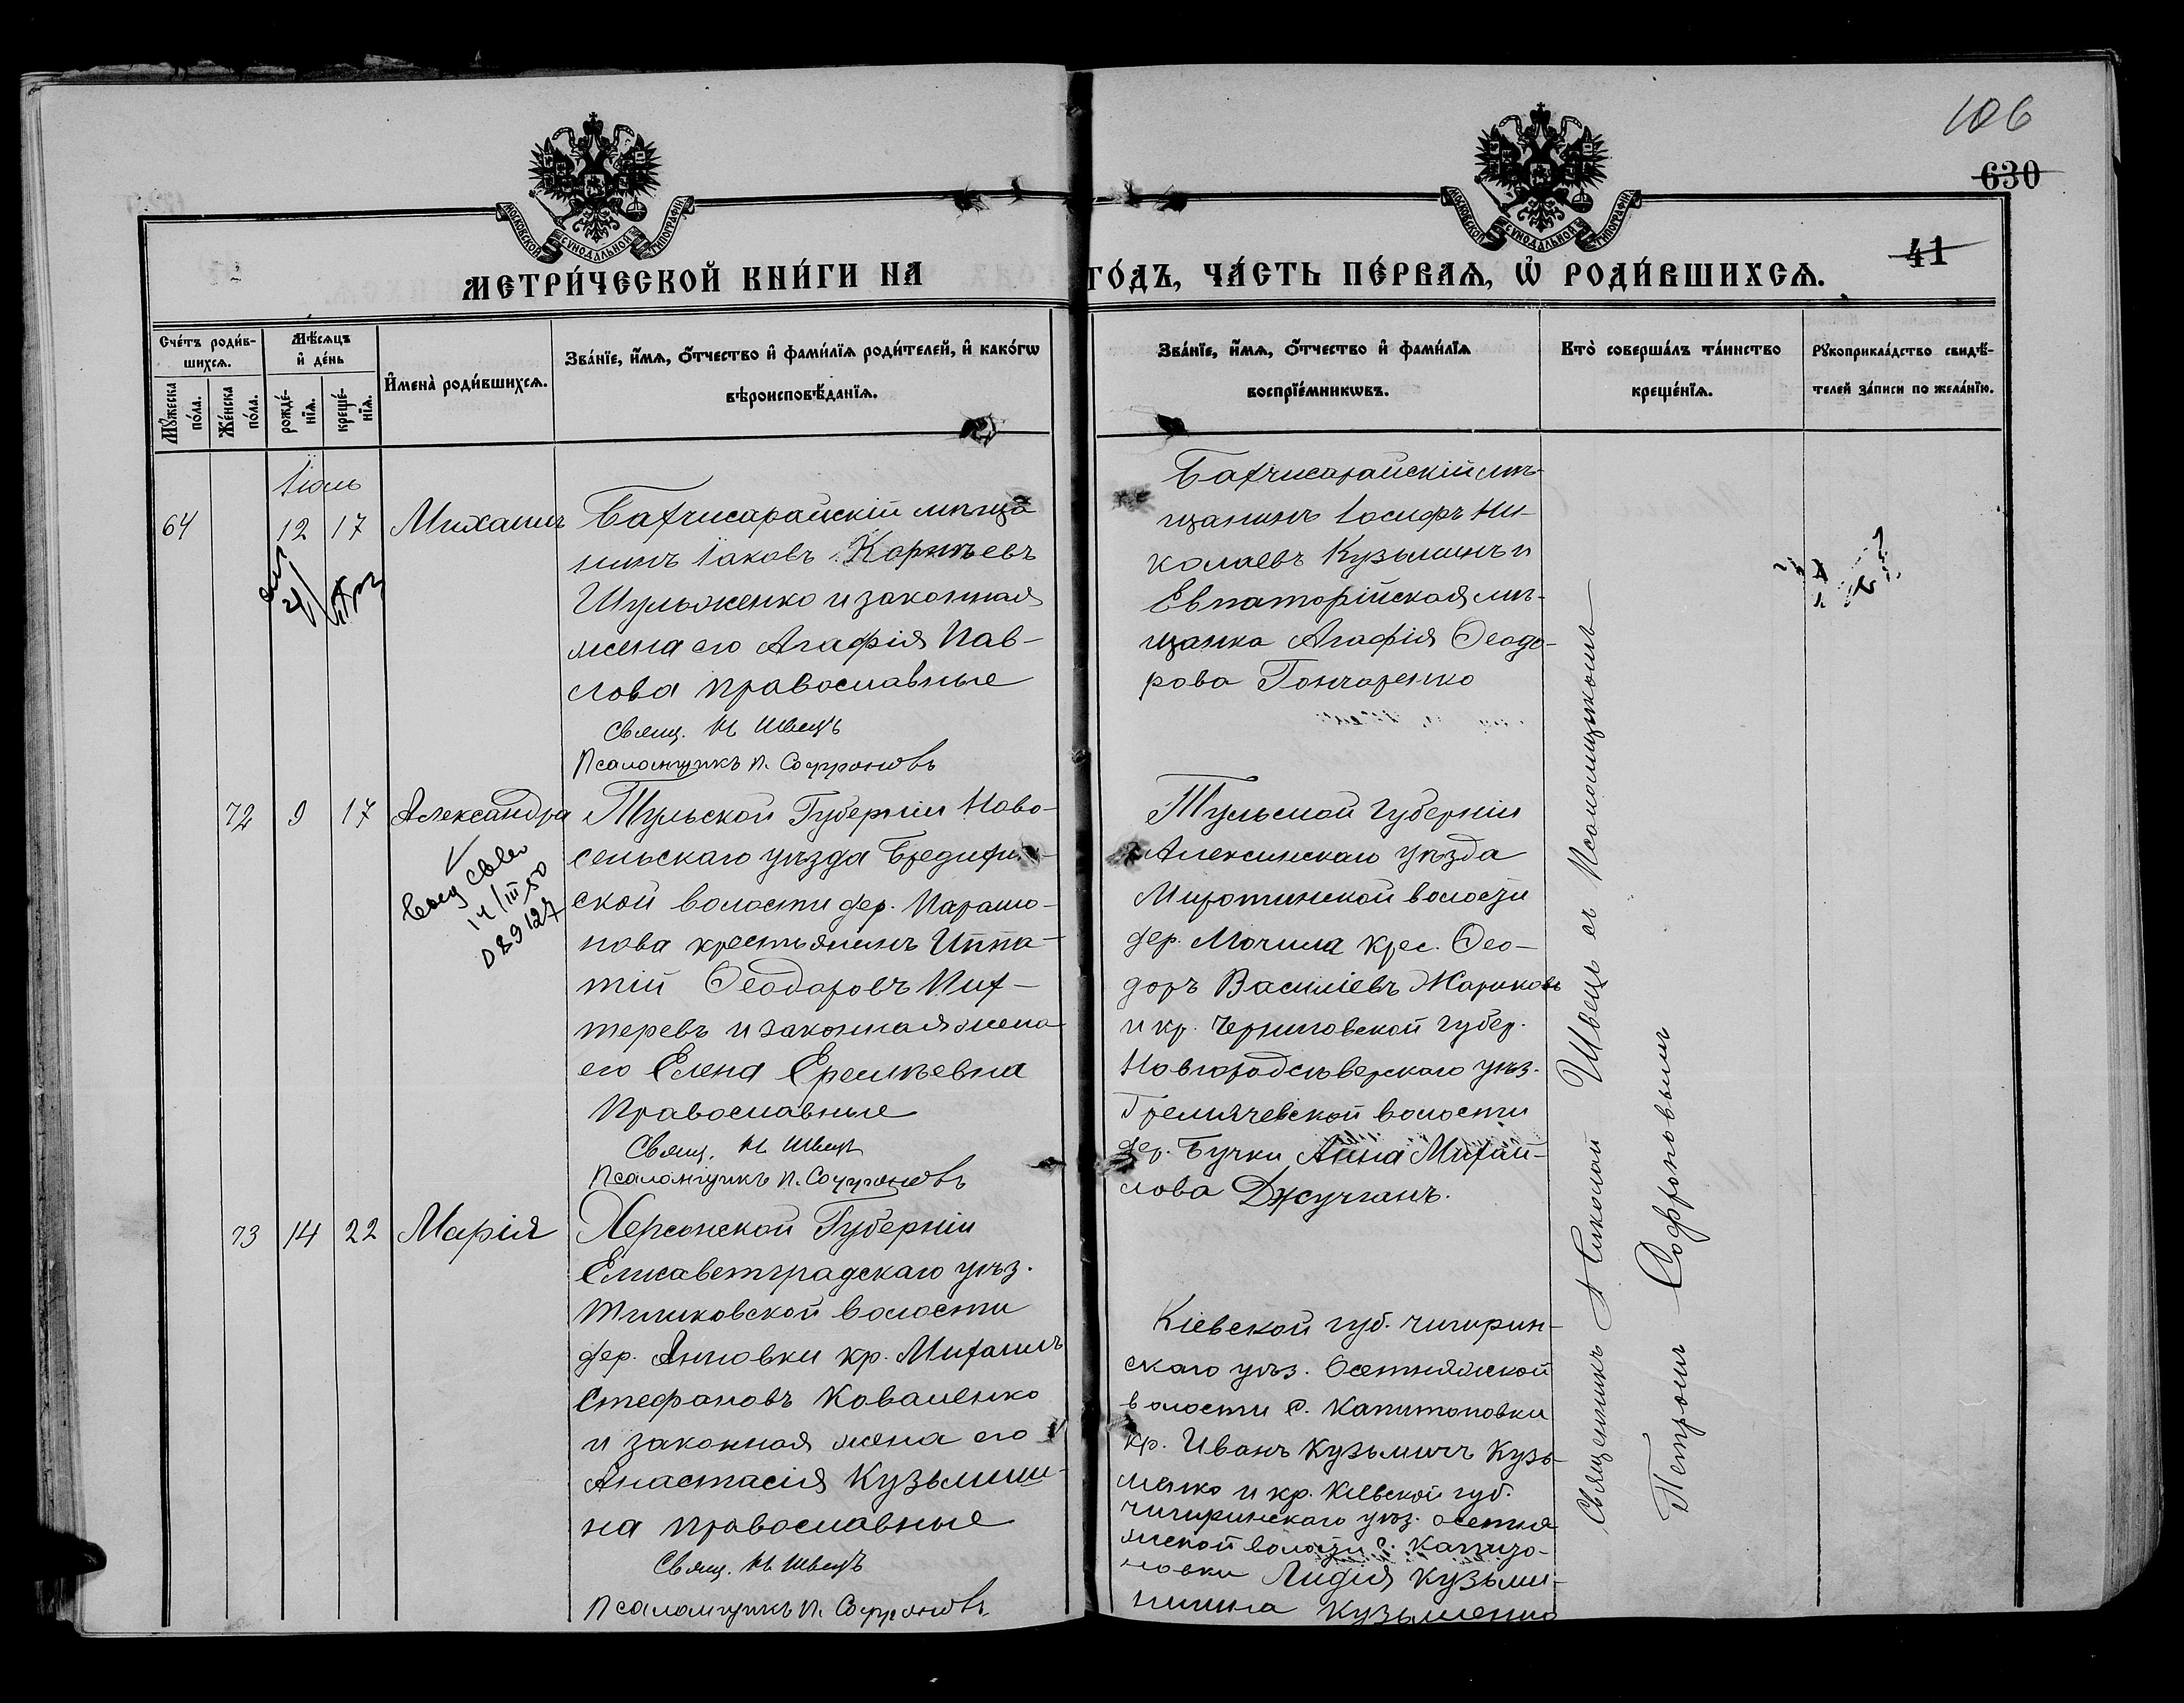 106
630
41
МОСКОВСКОЙ СУНОДАЛЬНОЙ ТИПОГРАФІИ
МОСКОВСКОЙ СУНОДАЛЬНОЙ ТИПОГРАФІИ
МЕТРИ́ЧЕСКОЙ КНИ́ГИ НА ГО́ДЪ, ЧА́СТЬ ПЕ́РВАѦ, Ѡ РОДИ́ВШИХСѦ.
Сче́тъ роди́в-
шихсѧ.
Мꙋжеска по́ла.
Же́нска по́ла.
Мѣ́сѧцъ
и де́нь
рожде́-
нїѧ.
креще́-
нїѧ.
Имена̀ роди́вшихсѧ.
Зва́нїе, и́мѧ, ѻ́тчество и фами́лїѧ роди́телей, и како́гѡ
вѣроисповѣ́данїѧ.
Зва́нїе, и́мѧ, ѻ́тчество и фами́лїѧ
воспрїе́мникѡвъ.
Кто̀ соверша́лъ та́инство
креще́нїѧ.
Рꙋкоприкла́дство свидѣ́-
телей за́писи по жела́нїю.
Іюль
64 12 17 Михаилъ
Бахчисарайскій мѣща
нинъ Іаковъ Корнѣевъ
Шульженко и законная
жена его Агафія Пав-
лова православные
Свящ. Н Швецъ
Псаломщикъ П. Софроновъ
Бахчисарайскій мѣ-
щанинъ Іосифъ Ни-
колаевъ Кузьминъ и
Евпаторійская мѣ-
щанка Агафія Ѳеодо-
рова Гончаренко
72 9 17 Александра
14/III 50
Тульской Губерніи Ново-
сельскаго уѣзда
ской волости дер. Парамо-
нова крестьянинъ Ипа-
тій Ѳеодоровъ Пих-
теревъ и законная жена
его Елена Еремѣевна
Православные
Свящ. Н Швецъ
Псаломщикъ П. Софроновъ
Тульской Губерніи
Алексинскаго уѣзда
Миротинской волости
дер. Мочила крес. Ѳео-
доръ Василіевъ Жариковъ
и кр. Черниговской губер.
Новгородсѣверскаго уѣз.
Гремячевской волости
дер. Бучки Анна Михай-
лова Джучганъ.
73 14 22 Марія
Херсонской Губерніи
Елисаветградскаго уѣз.
волости
дер. Анновки кр. Михаилъ
Стефановъ Коваленко
и законная жена его
Анастасія Кузьмини-
на православные
Свящ. Н Швецъ
Псаломщикъ П. Софроновъ
Кіевской губ. чигирин-
скаго уѣз. Осетняжской
волости с. Капитоновки
кр. Иванъ Кузьмичъ Кузь-
менко и кр. Кіевской губ.
чигиринскаго уѣз. осетня
жской волости с. Капито-
новки Лидія Кузьми-
нична Кузьменко
Священникъ Николай Швецъ съ Псаломщикомъ
Петромъ Софроновымъ